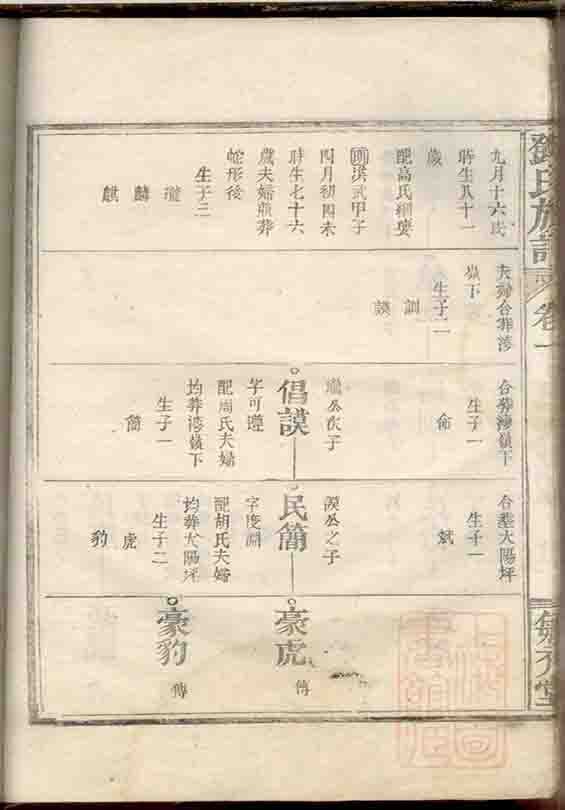 鄧氏族譜
卷一
九月十六戌
時生八十一
歲
配高氏細婆
洪武甲子
四月初四未
時生七十六
歲夫婦頂葬
蛇形後
生子三
瓏
麟
麒
夫婦合葬漆
嶺下
生子二
訓
謨
合葬漆嶺下
生子一
命
瓏公次子
倡謨
字可遵
配周氏夫婦
均葬漆嶺下
生子一
簡
合塟大陽坪
生子一
斌
謨公之子
民簡
字度淵
配胡氏夫婦
均葬大陽坪
生子二
虎
豹
豪虎
傳
豪豹
傳